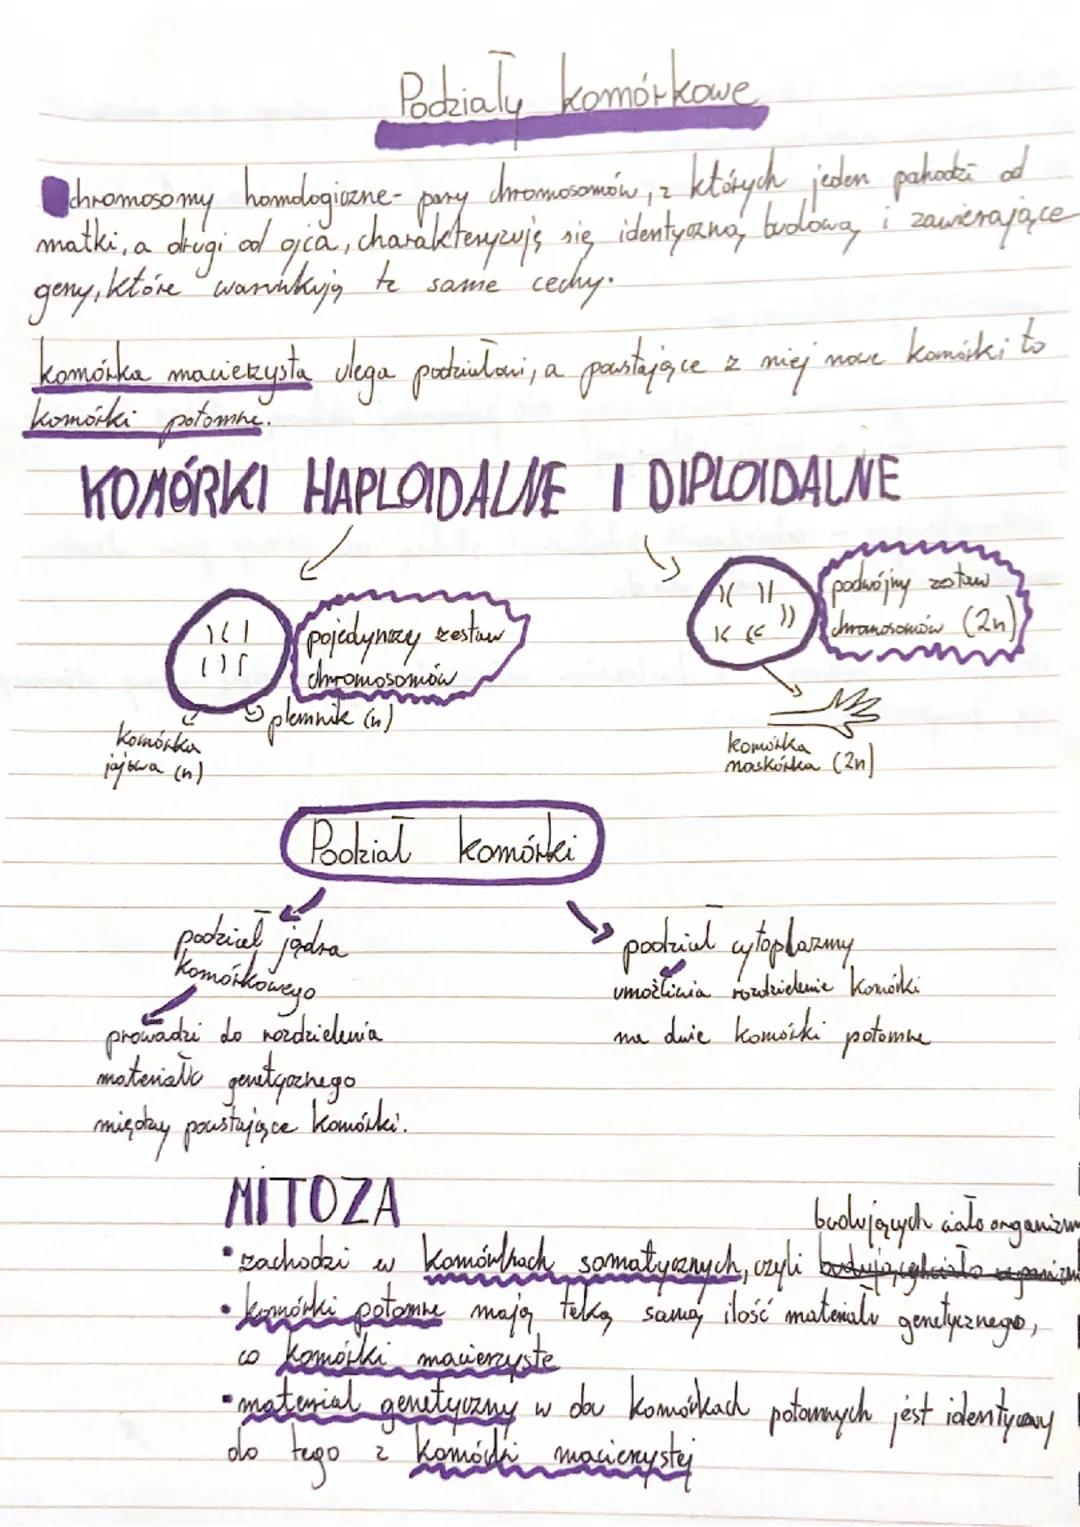 Podziały komórkowe
chromosomy homologiczne- pary chromosomów, z których jeden pohodzi od
matki, a drugi od ojca, charakteryzują się identyczną budową i zawierające
geny, które warunkują te same cechy.
komórka macierzysta ulega podziałowi, a powstające z niej nowe komórki to
komórki potomne.
KOMÓRKI HAPLOIDALNE I DIPLOIDALNE
podwójny zestaw
chromosomów (2n)
pojedynczy zestaw
chromosomów
plemnik (n)
komórka
jajowa (n)
komórka
naskórka (2n)
Podział komórki
podział jądra
komórkowego
prowadzi do rozdzielenia
materiału genetycznego
między powstające komórki.
podział cytoplazmy
umożliwia rozdzielenie komórki
na dwie komórki potomne
MITOZA
budujących ciało organizm
•zachodzi w komórkach somatycznych, czyli
•komórki potomne mają taką samą ilość materiału genetycznego,
co komórki macierzyste
•materiał genetyczny w komórkach potomnych jest identyczny
do tego z komórki macierzystej